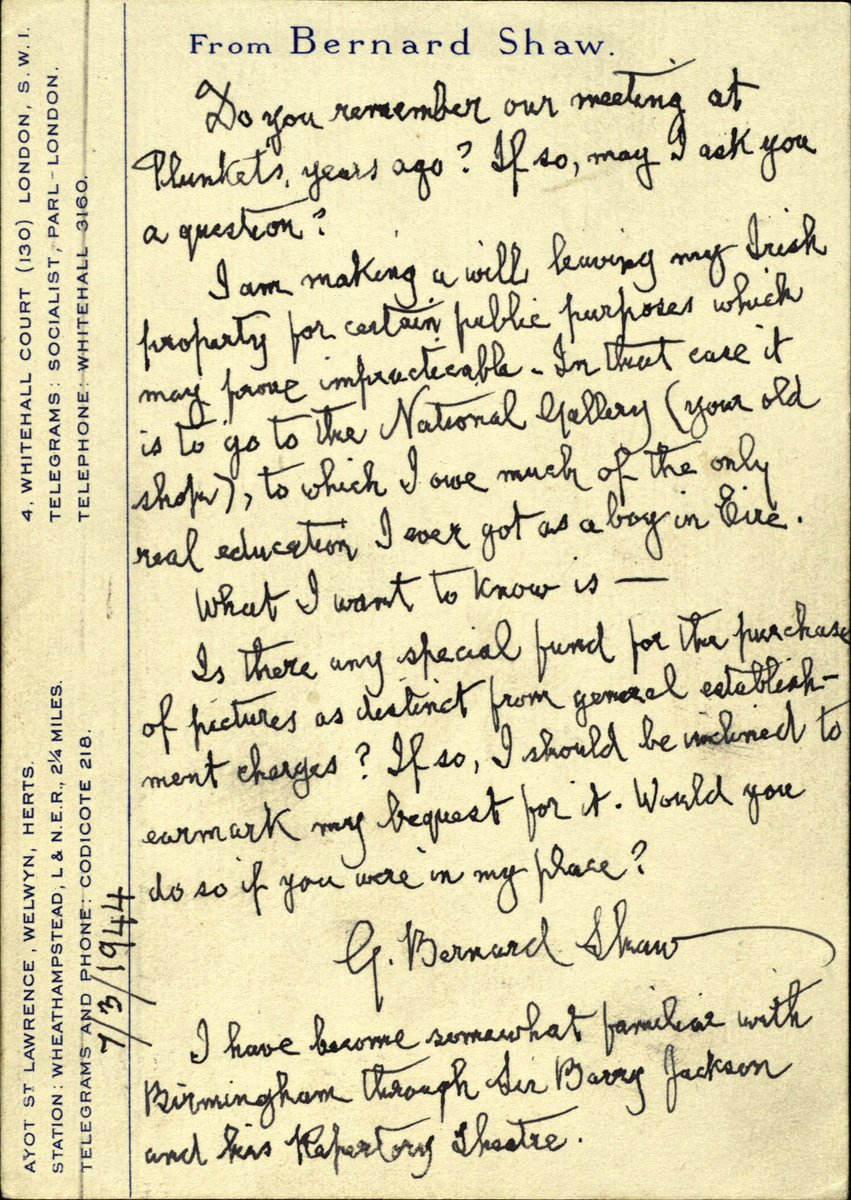 From Bernard Shaw.
Do you remember our meeting at
Plunkets, years ago? If so, may I ask you
a question?
I am making a will leaving my Irish
property for certain public purposes which
may prove impracticable. In that case it
is to go to the National Gallery (your old
shop), to which I owe much of the only
real education I ever got as a boy in Eire.
What I want to know is —
Is there any special fund for the purchase
of pictures as distinct from general establish-
ment charges? If so, I should be inclined to
earmark my bequest for it. Would you
do so if you were in my place?
G. Bernard Shaw
I have become somewhat familiar with
Birmingham through Sir Barry Jackson
and his Repertory Theatre.
7/3/1944
4, WHITEHALL COURT (130) LONDON, S.W.1.
TELEGRAMS: SOCIALIST, PARL-LONDON.
TELEPHONE: WHITEHALL 3160.
AYOT ST LAWRENCE, WELWYN, HERTS.
STATION: WHEATHAMPSTEAD, L & N.E.R., 2¼ MILES.
TELEGRAMS AND PHONE: CODICOTE 218.